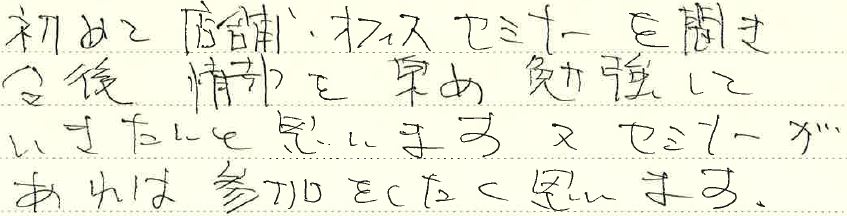 初めて店舗・オフィスセミナーを聞き
今後情報を集め勉強して
いきたいと思います又セミナーが
あれば参加をしたく思います。